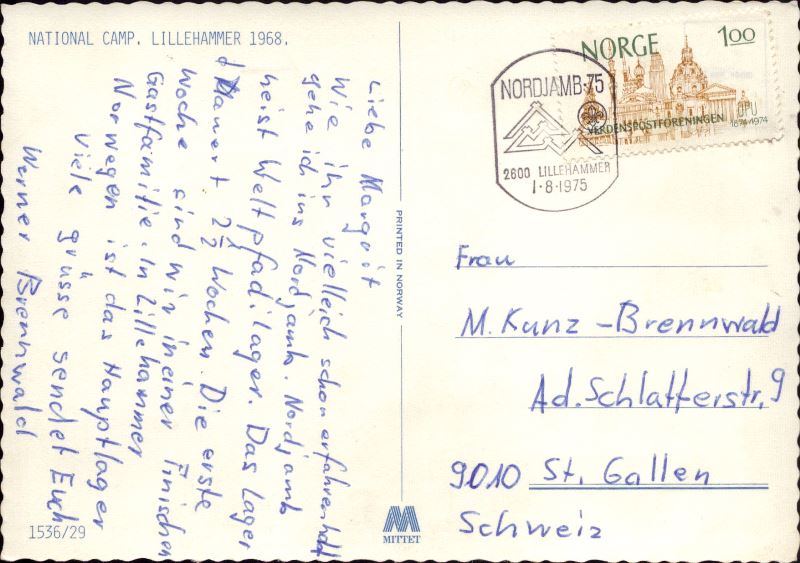 NATIONAL CAMP. LILLEHAMMER 1968.
Liebe Margrit
Wie ihr vielleich schon erfahren habt
gehe ich ins Nordjamb. Nordjamb
heist Weltpfadilager. Das Lager
dauert 2 1/2 Wochen. Die erste
Woche sind wir in einer Finischen
Gastfamilie. In Lillehammer
Norwegen ist das Hauptlager
Viele grüsse sendet Euch
Werner Brennwald
1536/29
PRINTED IN NORWAY
MITTET
NORDJAMB-75
2600 LILLEHAMMER
1-8-1975
NORGE 1.00
VERDENSPOSTFORENINGEN
UPU
1874-1974
Frau
M. Kunz-Brennwald
Ad. Schlatterstr. 9
9010 St. Gallen
Schweiz